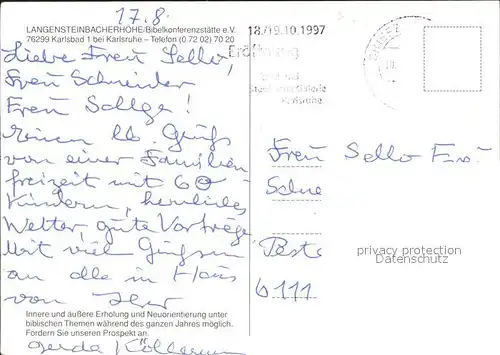 17.8.
LANGENSTEINBACHERHÖHE/Bibelkonferenzstätte e.V.
76299 Karlsbad 1 bei Karlsruhe – Telefon (0 72 02) 70 20
Liebe Freu Sello,
Freu Schneider
Freu Sallge!
Einen lb. Gruß
von einer Familien
freizeit mit 60
Kindern, herrliches
Wetter, gute Vorträge
Mit viel Grüßen
an alle im Haus
von Ihrer
Innere und äußere Erholung und Neuorientierung unter
biblischen Themen während des ganzen Jahres möglich.
Fordern Sie unseren Prospekt an.
Gerda
18./19.10.1997
Eröffnung
Karlsruhe
Freu Sello
Schne
Poste
6111
privacy protection
Datenschutz